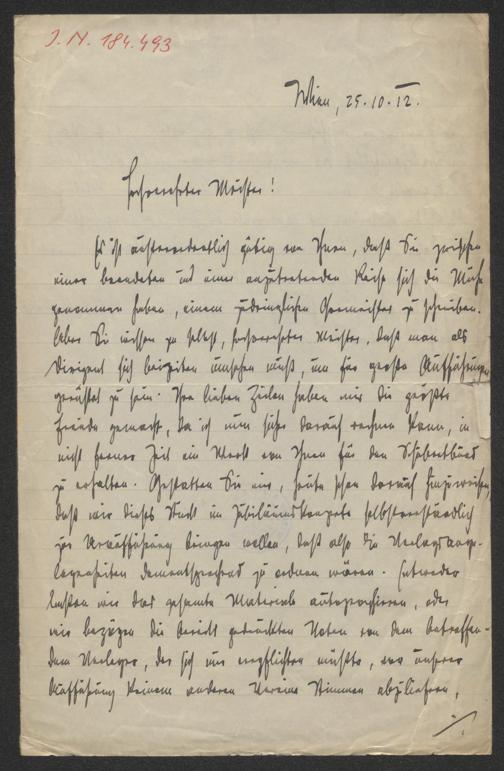 J.N. 184.493
Wien, 25.10.12.
Hochverehrter Meister!
Es ist außerordentlich gütig von Ihnen, daß Sie zwischen
einer beendeten und einer anzutretenden Reise sich die Mühe
genommen haben, einem zudringlichen Chormeister zu schreiben.
Aber Sie wissen ja selbst, hochverehrter Meister, daß man als
Dirigent sich beizeiten umsehen muß, um für große Aufführungen
gerüstet zu sein. Ihre lieben Zeilen haben mir die größte
Freude gemacht, da ich nun sicher darauf rechnen kann, in
nicht ferner Zeit ein Werk von Ihnen für den Schubertbund
zu erhalten. Gestatten Sie mir, heute schon darauf hinzuweisen,
daß wir dieses Stück im Jubiläumskonzerte selbstverständlich
zur Uraufführung bringen wollen, daß also die Verlagsange-
legenheiten dementsprechend zu ordnen wären. Entweder
ließen wir das gesamte Materiale autographieren, oder
wir bezögen die bereits gedruckten Noten von dem betreffen-
dem Verleger, der sich uns verpflichten müßte, vor unserer
Aufführung keinem anderen Vereine Stimmen abzuliefern,